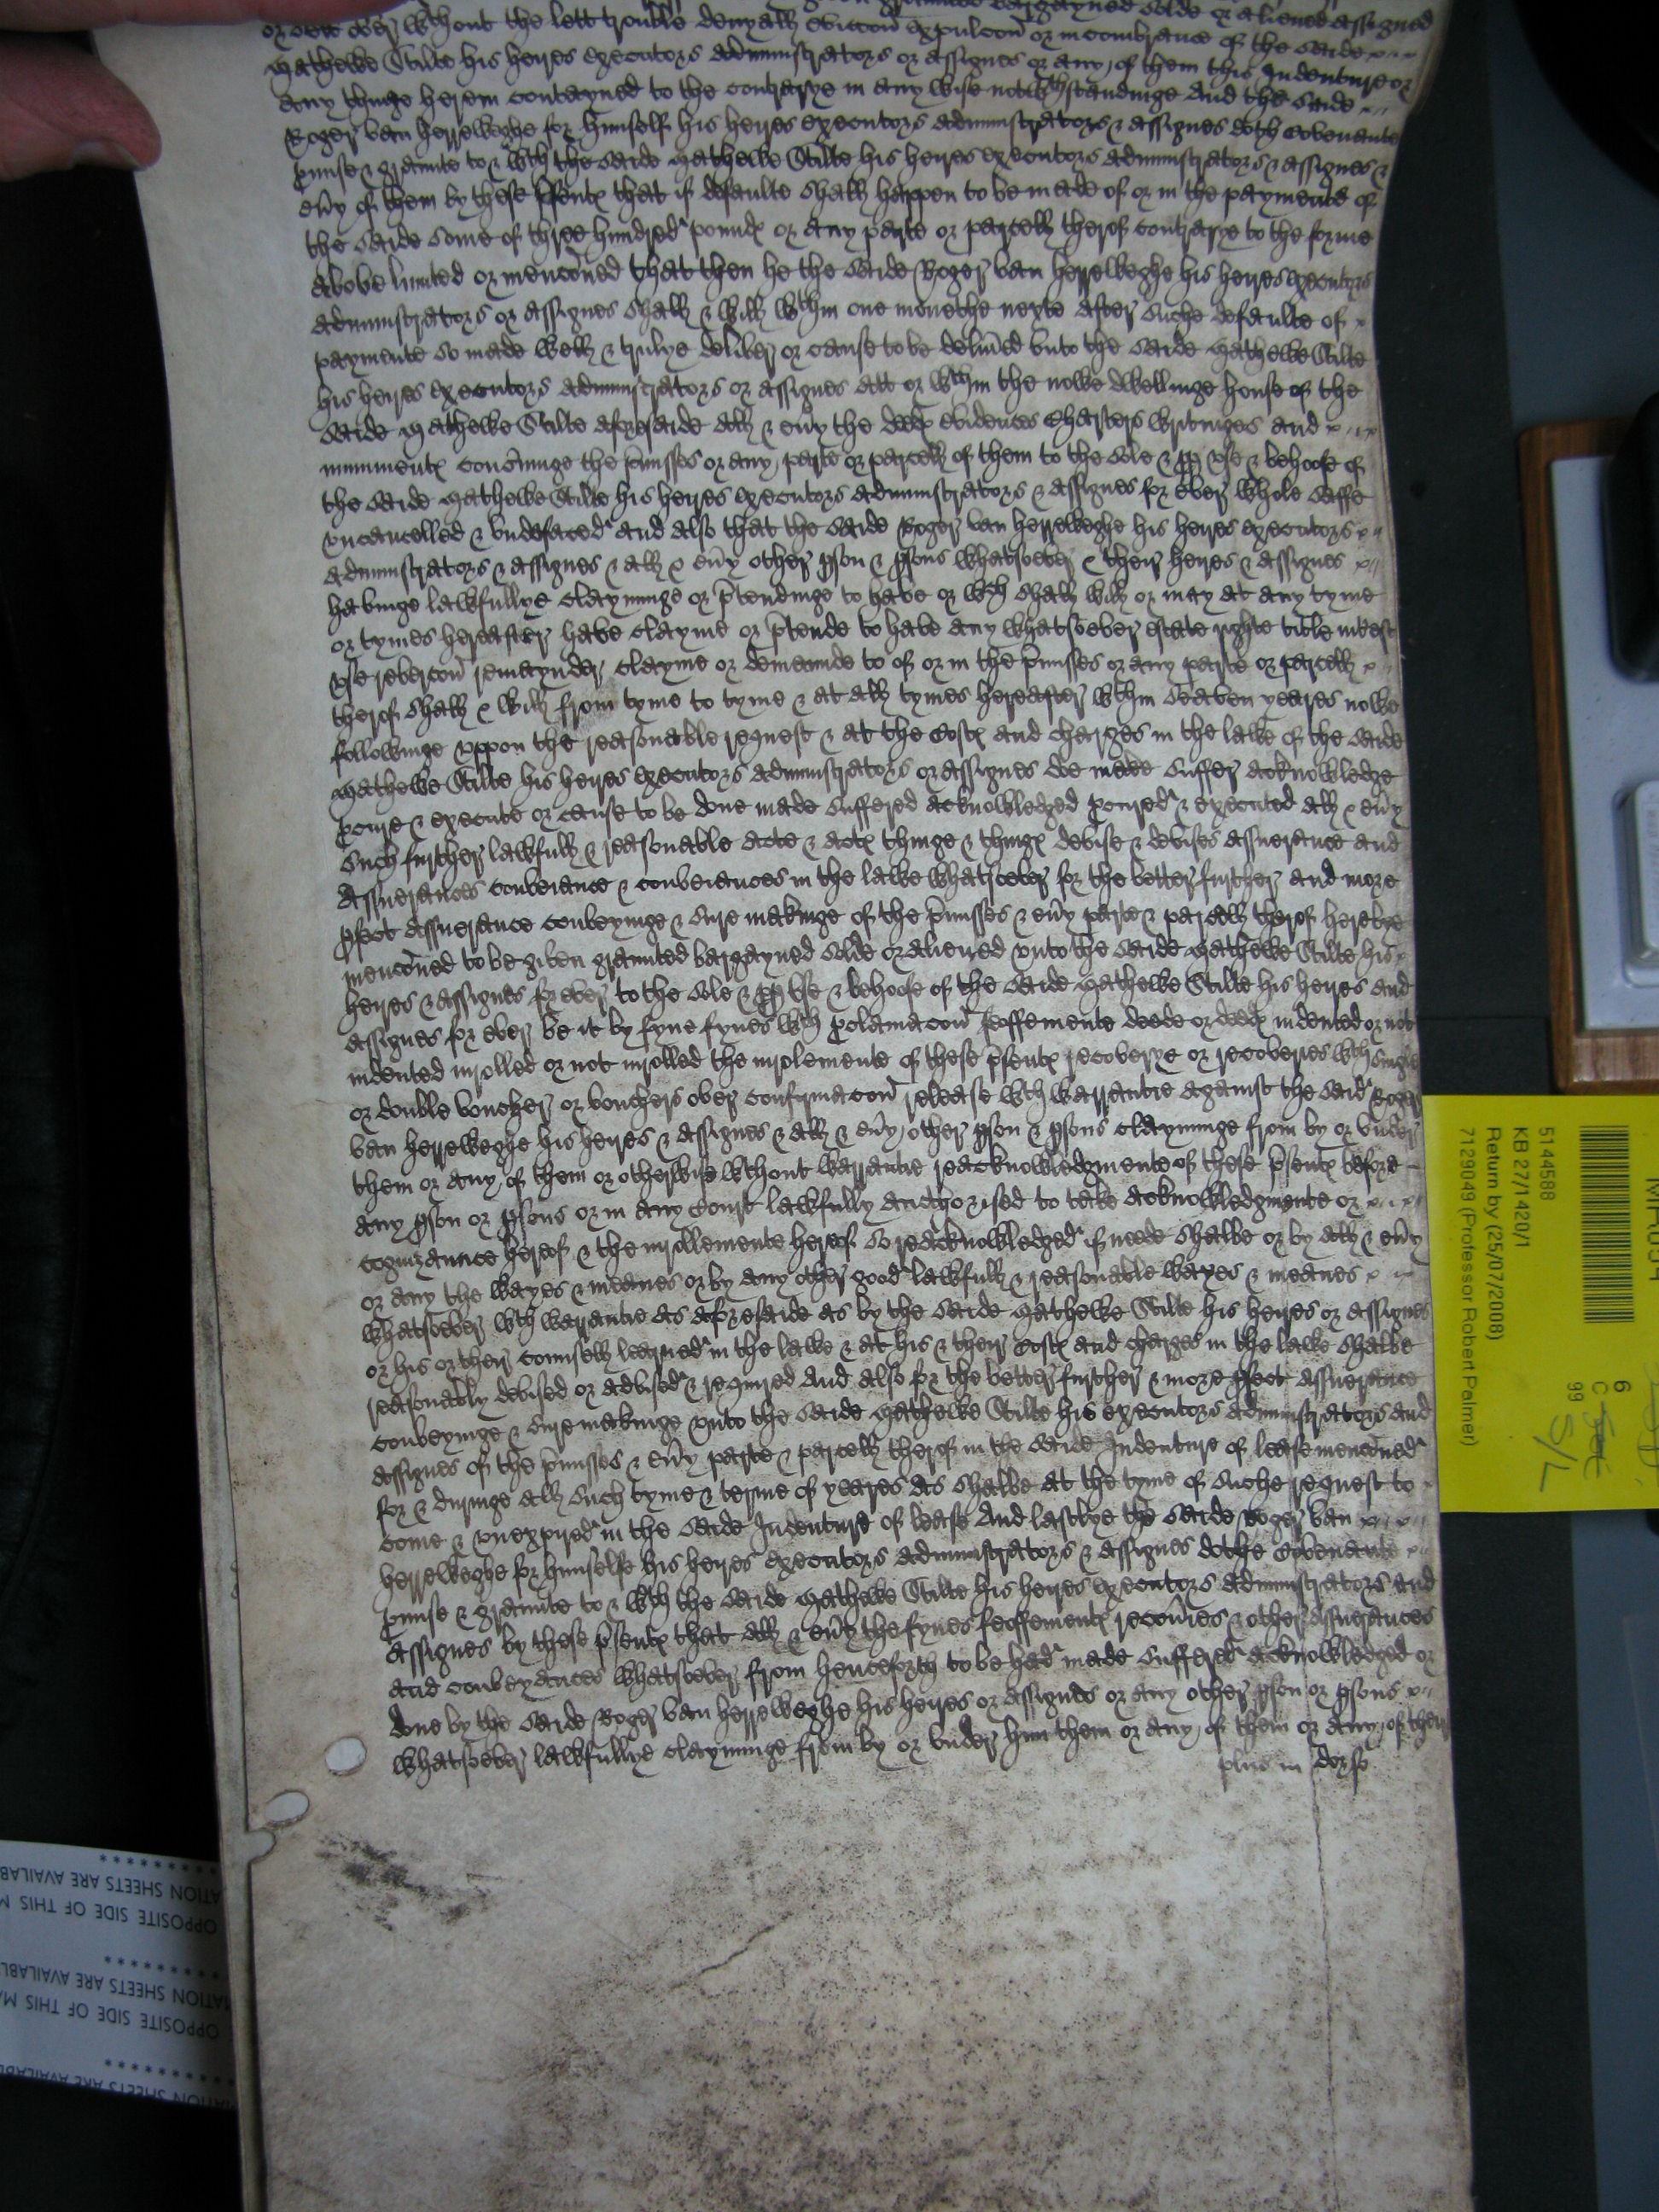 bargayned solde or aliened assigned
without the lett trouble denyall eviccon expulcon or incombrance of the saide
Mathewe Stilte his heyres executors administrators or assignes or any of them this Indenture or
any thinge herein contayned to the contrarye in any wise notwthstandinge And the saide
Roger van Herreweghe for himself his heyres executors administrators & assignes doth Covenante
pmise & graunte to & wth the saide Mathewe Stilte his heyres executors administrators & assignes &
euy of them by these psent that if defaulte shall happen to be made of or in the paymente of
the saide some of three hundred pound or any parte or parcell therof contrarye to the forme
above limited or menconed that then he the saide Roger van Herreweghe his heyres executors
administrators or assignes shall & will wthin one monethe nexte after suche defaulte of
paymente so made well & trulye deliver or cause to be deliued vnto the saide Mathewe Stilte
his heyres executors administrators or assignes att or wthin the nowe dwellinge house of the
saide Mathewe Stilte aforesaide all & euy the deed evidences Charters writinges and
muniment concninge the pmisses or any parte or parcell of them to the sole & pp vse & behoofe of
the saide Mathewe Stilte his heyres executors administrators & assignes for ever whole saffe
vncancelled & vndefaced and also that the saide Roger van Herreweghe his heyres executors
administrators & assignes & all & euy other pson & psons whatsoever & their heyres & assignes
havinge lawfullye clayminge or ptendinge to have or wch shall will or may at any tyme
or tymes hereafter have clayme or ptende to have any whatsoever estate righte title intest
vse revercon remaynder clayme or demaunde to of or in the pmisses or any parte or parcell
therof shall & will from tyme to tyme & at all tymes hereafter wthin seaven yeares nowe
followinge vppon the reasonable request & at the Cost and charges in the lawe of the saide
Mathewe Stilte his heyres executors administrators or assignes doe make suffer acknowledge
pcure & execute or cause to be done made suffered acknowledged pcured & executed all & euy
such further lawfull & reasonable acte & act thinge & thing devise & devises assuerance and
assuerances conveiance & conveiances in the lawe whatsoever for the better further and more
pfect assuerance conveyinge & sure makinge of the pmisses & euy parte & parcell therof herebye
menconed to be given graunted bargayned solde or aliened vnto the saide Mathewe Stilte his
heyres & assignes for ever to the sole & pp vse & behoofe of the saide Mathewe Stilte his heyres and
assignes for ever be it by fyne fynes wth pclamacon feoffemente deede or deed indented or not
indented inrolled or not inrolled the inrolemente of these psent recoverye or recoveries wth single
or double voucher or vouchers over confyrmacon release wth warrantie against the said Roger
van Herreweghe his heyres & assignes & all & euy other pson & psons claymenge from by or vnder
them or any of them or otherwise wthout warrantie reacknowledgmente of these psent before
any pson or psons or in any Court lawfully aucthorised to take acknowledgmente or
cognizaunce herof & the inrollemente herof so reacknowledged if neede shalbe or by all & euy
or any the wayes & meanes or by any other good lawfull & reasonable wayes & meanes
whatsoever wth warrantie as aforesaide as by the saide Mathewe Stilte his heyres or assignes
or his or their counsell learned in the lawe & at his & their Cost and charges in the lawe shalbe
reasonably devised or advised & required And also for the better further & more pfect assuerance
conveyinge & sure makinge vnto the saide Mathewe Stilte his executors administrators and
assignes of the pmisses & euy parte & parcell therof in the saide Indenture of lease menconed
for & duringe all such tyme & terme of yeares as shalbe at the tyme of suche request to
come & vnexpyred in the saide Indenture of lease And lastlye the saide Roger van
Herreweghe for himselfe his heyres executors administrators & assignes dothe Covenante
pmise & graunte to & wth the saide Mathewe Stilte his heyres executors administrators and
assignes by these psent that all & euy the fynes feoffement recouies & other assuerances
and conveyances whatsoever from henceforth to be had made suffered acknowledged or
done by the saide Roger van Herreweghe his heyres or assignes or any other pson or psons
whatsoever lawfullye claymenge from by or vnder him them or any of them or any of their
plus in dorso
5144588
KB 27/1420/1
Return by (25/07/2008)
7129049 (Professor Robert Palmer)
6
C
99
S/L
ATION SHEETS ARE AVAILAB
OPPOSITE SIDE OF THIS M
**********
ATION SHEETS ARE AVAILABL
OPPOSITE SIDE OF THIS MA
**********
ATION SHEETS ARE AVAILABL